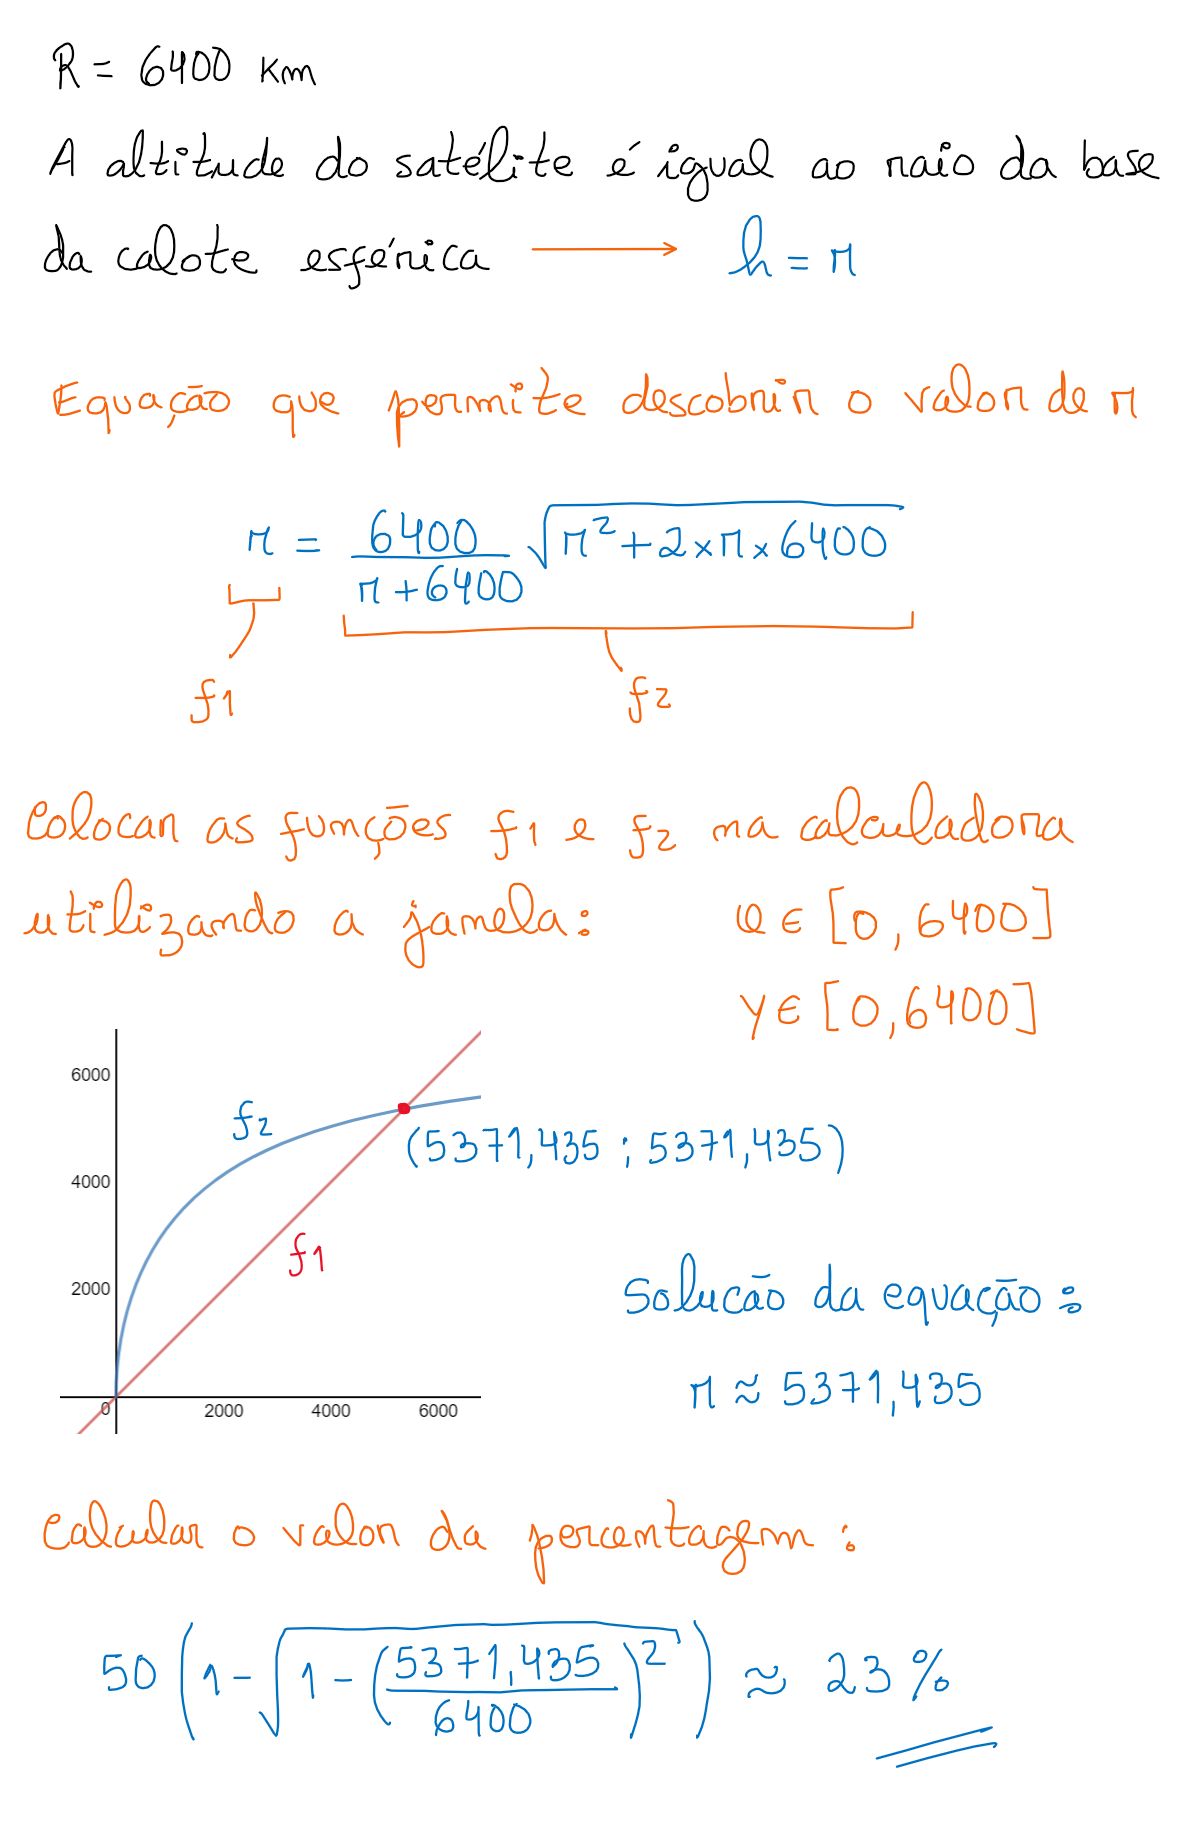 R = 6400 km
A altitude do satélite é igual ao raio da base
da calote esférica → h = r
Equação que permite descobrir o valor de r
r = 6400/(r + 6400) √(r² + 2 × r × 6400)
f1 f2
Colocar as funções f1 e f2 na calculadora
utilizando a janela: x ∈ [0, 6400]
y ∈ [0, 6400]
6000
f2
(5371,435 ; 5371,435)
4000
f1
2000
Solucão da equação :
r ≈ 5371,435
0 2000 4000 6000
Calcular o valor da percentagem :
50 (1 - √(1 - (5371,435/6400)²)) ≈ 23 %